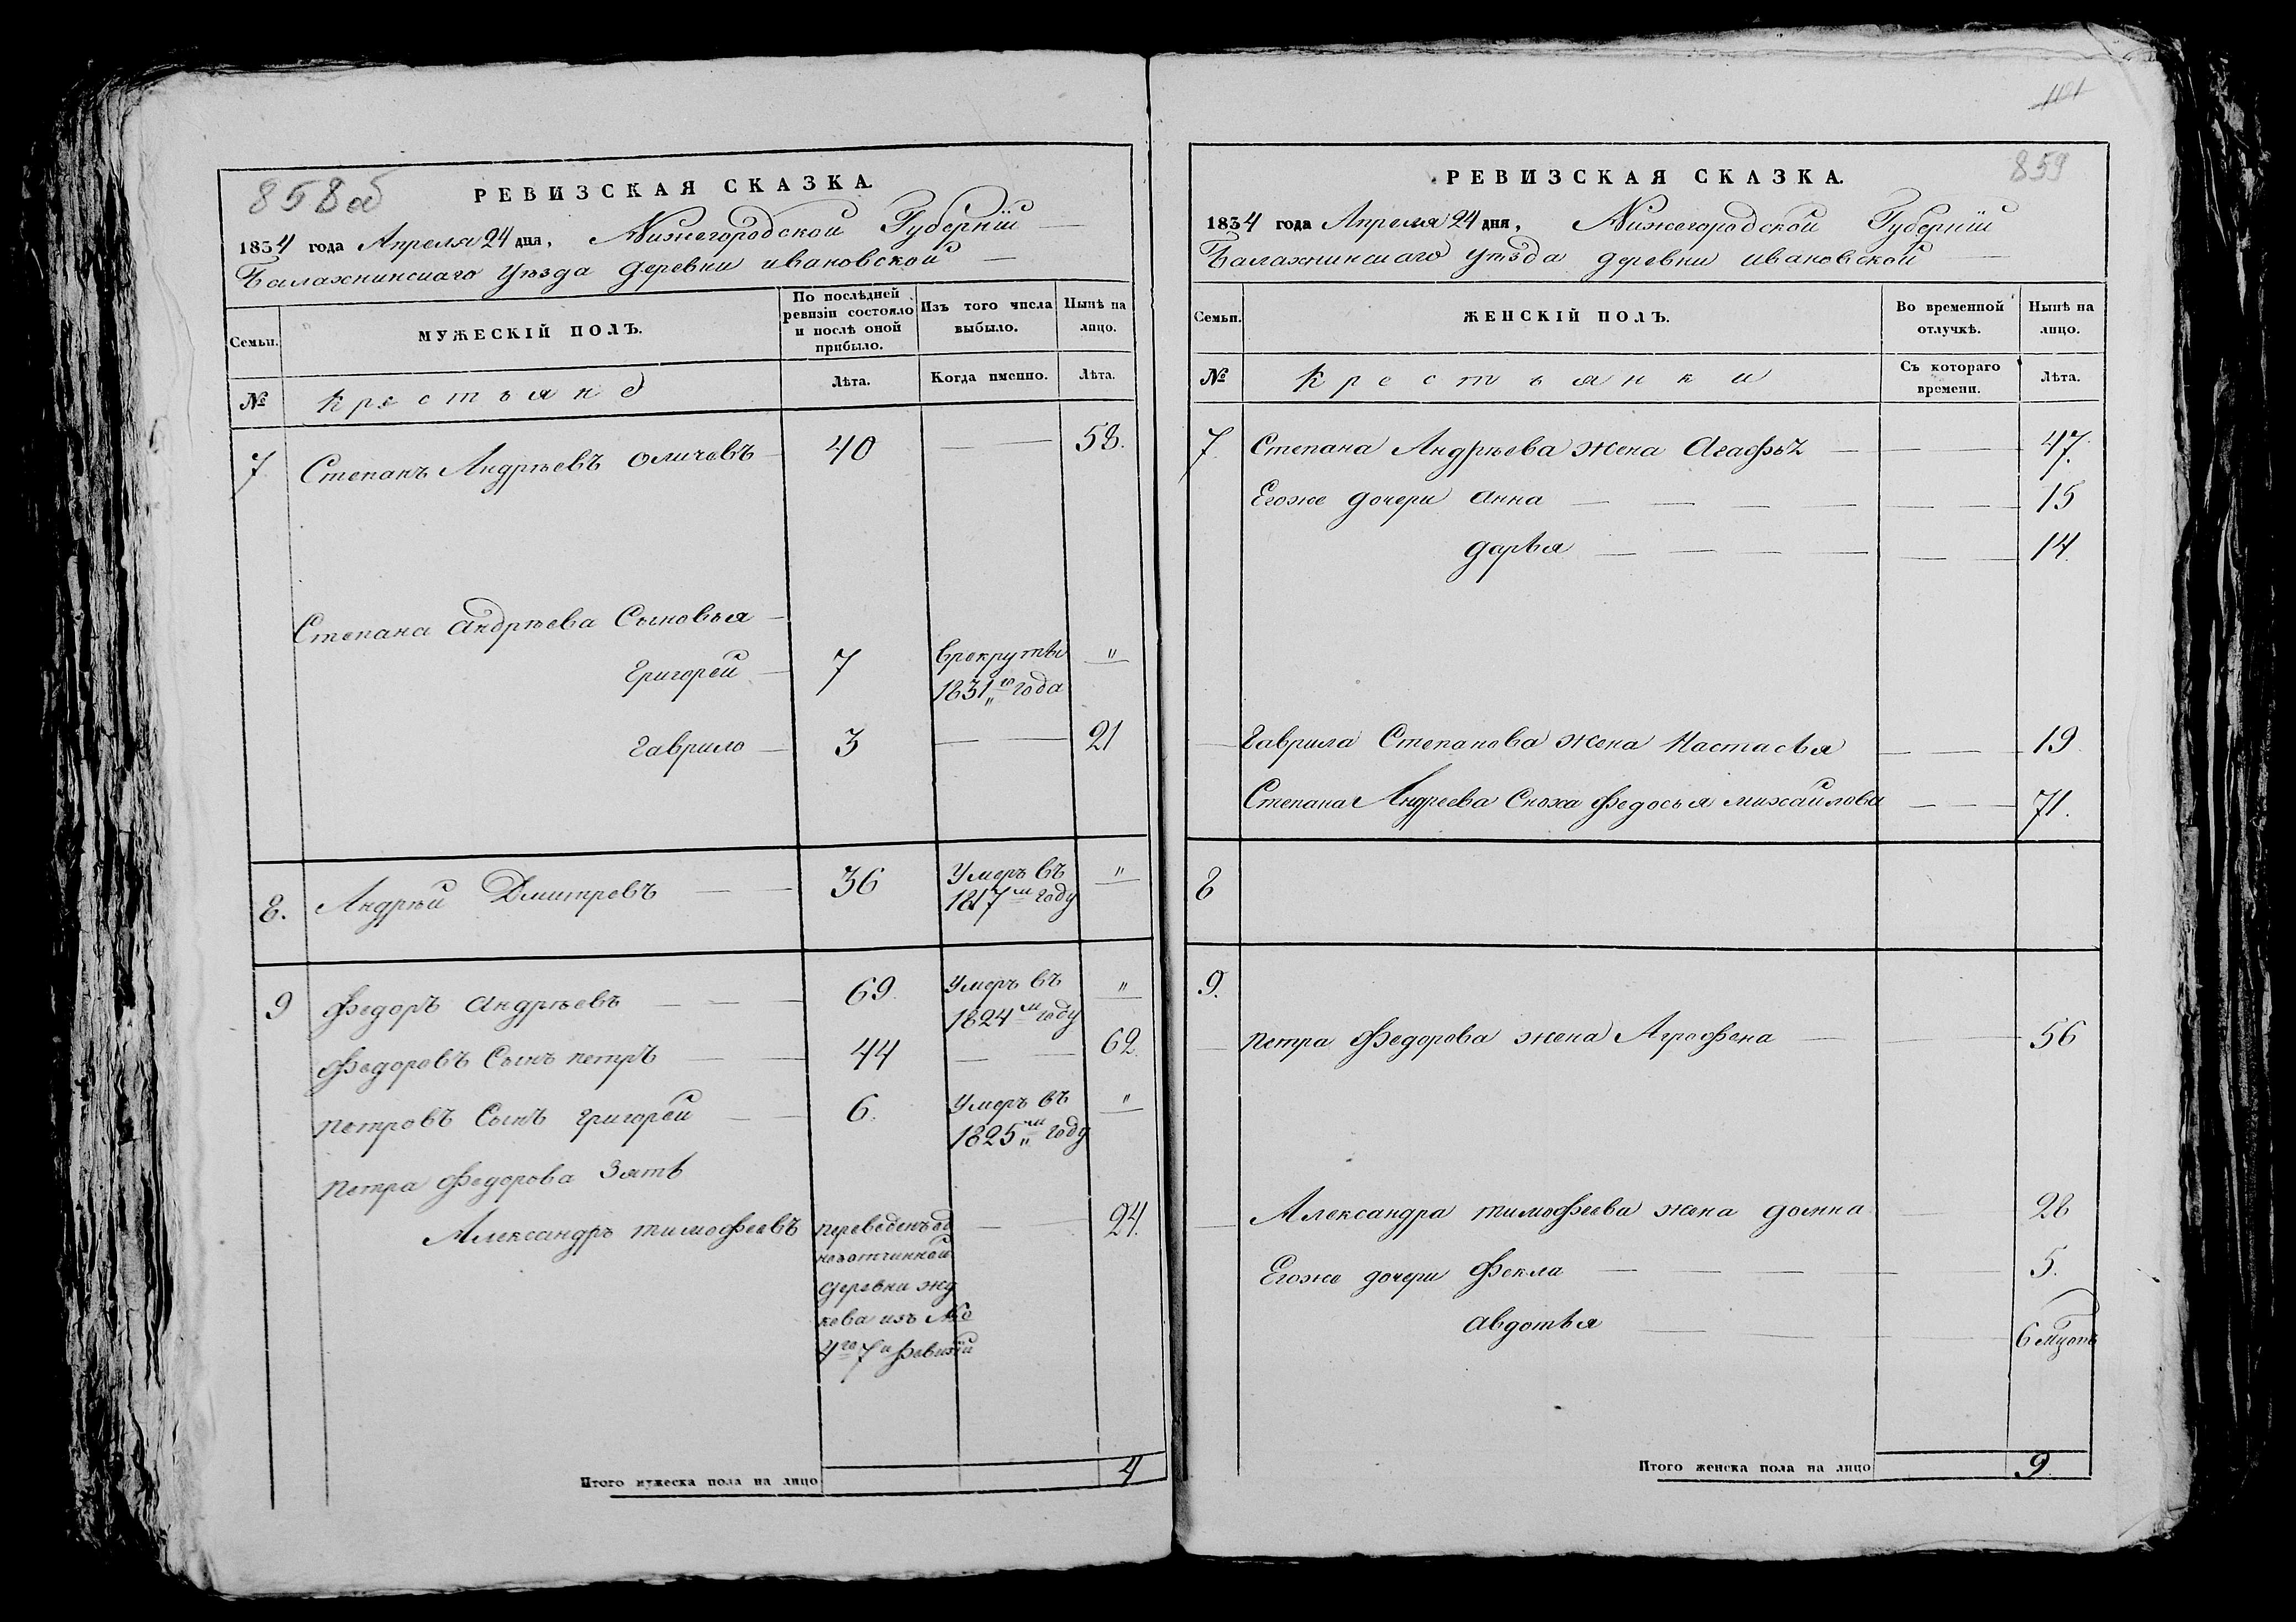 858об
РЕВИЗСКАЯ СКАЗКА.
1834 года Апреля 24 дня, Нижегородской Губернїи
Балахнинскаго уезда деревни ивановской
Семьи.
МУЖЕСКІЙ ПОЛЪ.
По послѣдней ревизіи состояло и послѣ оной прибыло.
Изъ того числа выбыло.
Нынѣ на лицо.
№ Крестьянъ Лѣта. Когда именно. Лѣта.
7 Степанъ Андрѣевъ 40 58.
Степана андрѣева Сыновья
Григорей 7 врекруты "
1831 го года
Гаврило 3 21
8. Андрѣй Дмитревъ 36 Умеръ въ "
1817 м году
9 Федоръ андрѣевъ 69. Умеръ въ "
1824 м году
Федоровъ Сынъ петръ 44 62.
петровъ Сынъ григорей 6. Умеръ въ "
1825 м году
петра Федорова Зять
Александръ тимофеевъ переведенъ од 24.
новотчинной
деревни жу
кова изъ №о
4го 7й Ревизїи
Итого мужеска пола на лицо 4
859
РЕВИЗСКАЯ СКАЗКА.
1834 года Апреля 24 дня, Нижегородской Губернїи
Балахнинскаго уезда деревни ивановской
Семьи.
ЖЕНСКІЙ ПОЛЪ.
Во временной отлучкѣ.
Нынѣ на лицо.
№ Крестьянки Съ котораго времени. Лѣта.
7. Степана Андрѣева жена Агафья 47.
Егоже дочери анна 15
дарья 14.
Гаврила Степанова жена Настасья 19
Степана Андреева Сноха Федосья михайлова 71.
8
9.
петра Федорова жена Аграфена 56
Александра тимофеева жена 28
Егоже дочери Фекла 5.
авдотья 6 мцовъ
Итого женска пола на лицо 9.